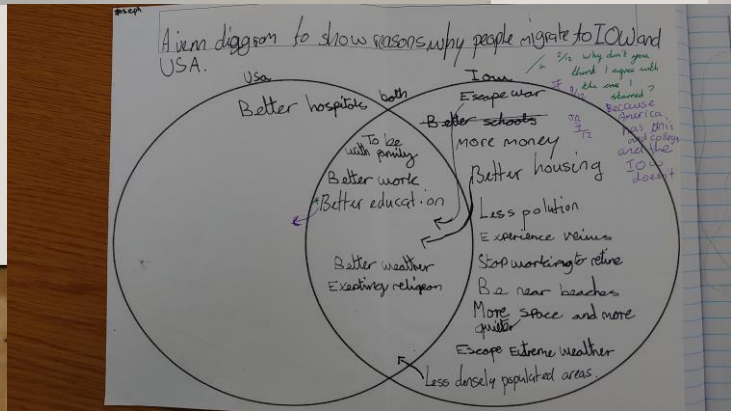 A venn diggram to show reasons why people migrate to IOW and
USA.
Usa
both
Iow
Better hospitals
To be
with family
Better work
Better education
Better weather
Exepting religeon
Escape war
Better schools
more money
Better housing
Less polution
Experience
Stop working to retire
Be near beaches
More space and more
quiter
Escape Extreme weather
Less densely populated areas.
why don't you
think I agree with
the one I
starred?
Because
America
has this
and college
and the
IOW
doesn't